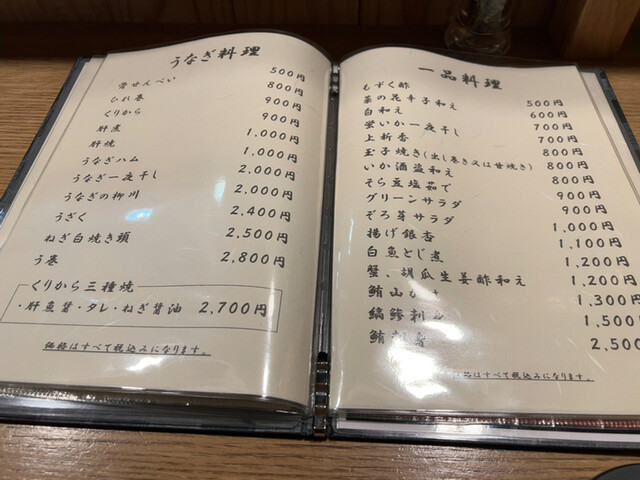 うなぎ料理
骨せんべい 500円
ひれ巻 800円
くりから 900円
肝煮 900円
肝焼 1,000円
うなぎハム 1,000円
うなぎ一夜干し 2,000円
うなぎの柳川 2,000円
うざく 2,400円
ねぎ白焼き頭 2,500円
う巻 2,800円
くりから三種焼
・肝魚醤・タレ・ねぎ醤油 2,700円
価格はすべて税込みになります。
一品料理
もずく酢 500円
菜の花辛子和え 600円
白和え 700円
蛍いか一夜干し 700円
上新香 800円
玉子焼き(出し巻き又は甘焼き) 800円
いか酒盗和え 800円
そら豆塩茹で 900円
グリーンサラダ 900円
ぞろ芽サラダ 1,000円
揚げ銀杏 1,100円
白魚とじ煮 1,200円
蟹、胡瓜生姜酢和え 1,200円
鮪山か 1,300円
縞鯵刺身 1,500円
鮪 身 2,500
格はすべて税込みになります。